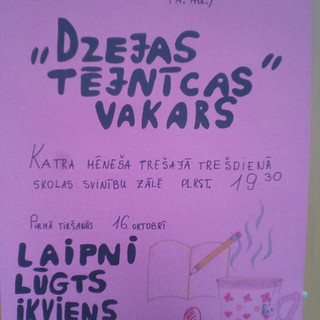 „DZEJAS
TĒJNĪCAS"
VAKARS
KATRA MĒNEŠA TREŠAJĀ TREŠDIENĀ
SKOLAS SVINĪBU ZĀLĒ PLKST. 19 30
PIRMĀ TIKŠANĀS 16. OKTOBRĪ
LAIPNI
LŪGTS
IKVIENS